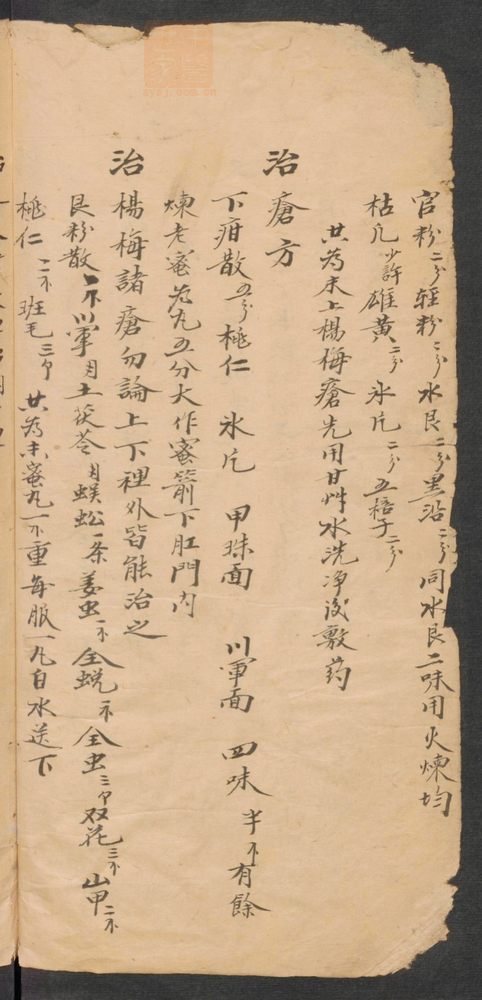 官粉二分 轻粉二分 水艮二分 黑沿二分 同水艮二味用火煉均
枯凡少許 雄黄二分 氷片二分 五棓子二分
共为末上楊梅瘡先用甘艸水洗净後敷药
治瘡方
下疳散五分 桃仁 氷片 甲珠面 川軍面 四味半个有餘
煉老蜜为丸五分大作蜜箭下肛門内
治楊梅諸瘡勿論上下裡外皆能治之
艮粉散 川軍 土茯苓 蜈蚣一条 姜虫一个 全蜕 全虫三 双花三个 山甲二个
桃仁二个 班毛三 共为末蜜丸一个重每服一丸白水送下